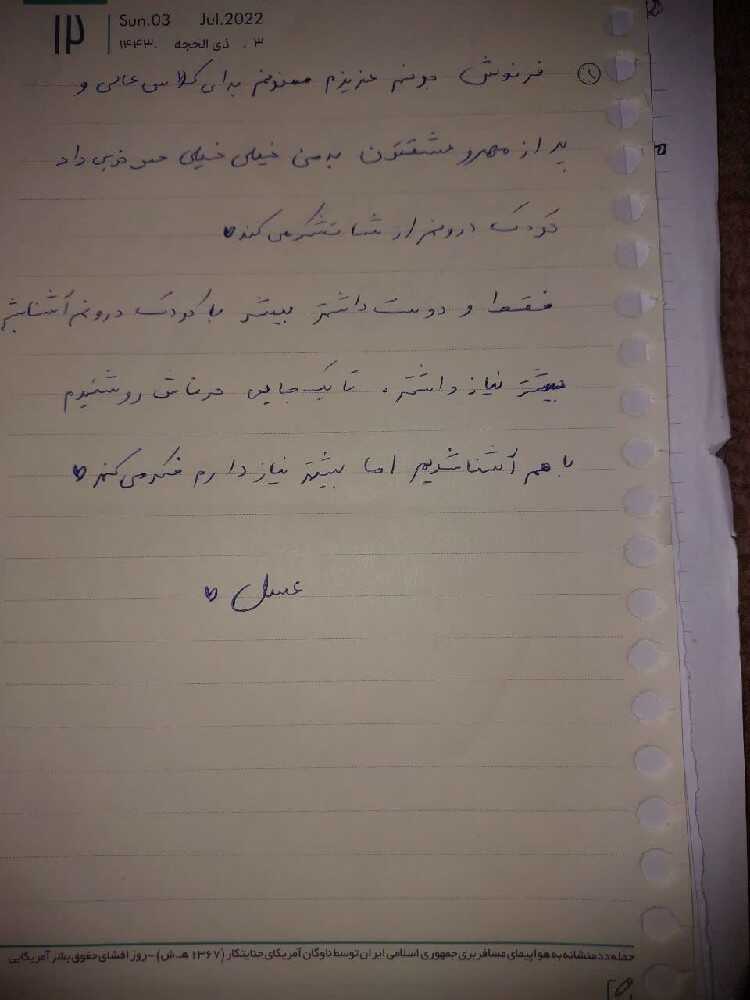 ۱۲
Sun.03 Jul.2022
۳ . ذی الحجه .۱۴۴۳
فرنوش جونم عزیزم ممنونم برای کلاس عالی و
پر از مهر و عشقتون به من خیلی خیلی حس خوبی داد
کودک درونم از شما تشکر می کنه
فقط و دوست داشتم بیشتر با کودک درونم آشنا بشم
بیشتر نیاز داشتم، تا یک جایی حرفاش رو شنیدم
با هم آشنا شدیم اما بیشتر نیاز دارم فکر می کنم
عسل
حمله ددمنشانه به هواپیمای مسافربری جمهوری اسلامی ایران توسط ناوگان آمریکای جنایتکار (۱۳۶۷ هـ.ش) - روز افشای حقوق بشر آمریکایی